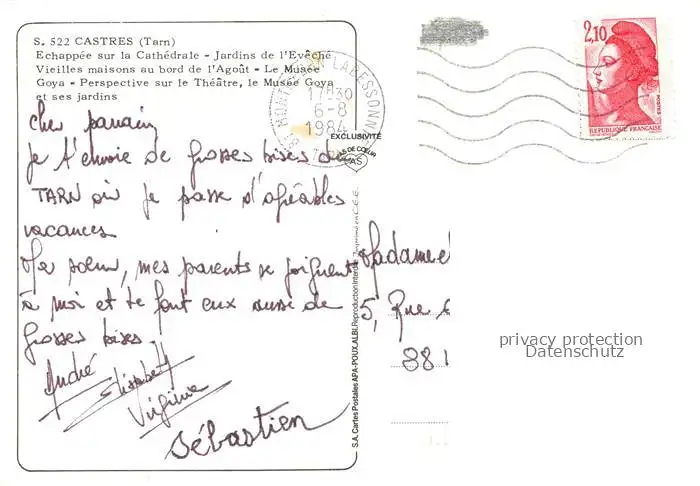 S. 522 CASTRES (Tarn)
Echappée sur la Cathédrale - Jardins de l'Evêché
Vieilles maisons au bord de l'Agoût - Le Musée
Goya - Perspective sur le Théâtre, le Musée Goya
et ses jardins
LABESSONNIE
17H30
6-8
1984
EXCLUSIVITÉ
AS DE CŒUR
AS
2,10
POSTES
REPUBLIQUE FRANÇAISE
cher parrain,
Je t'envoie de grosses bises du
TARN où je passe d'agréables
vacances
Ma soeur, mes parents se joignent
à moi et te font eux aussi de
grosses bises.
André
Elisabeth
Virginie
Sébastien
S.A. Cartes Postales APA-POUX, ALBI. Reproduction Interdite. Imprimé en C.E.E.
Madame et
5, Rue
88
privacy protection
Datenschutz